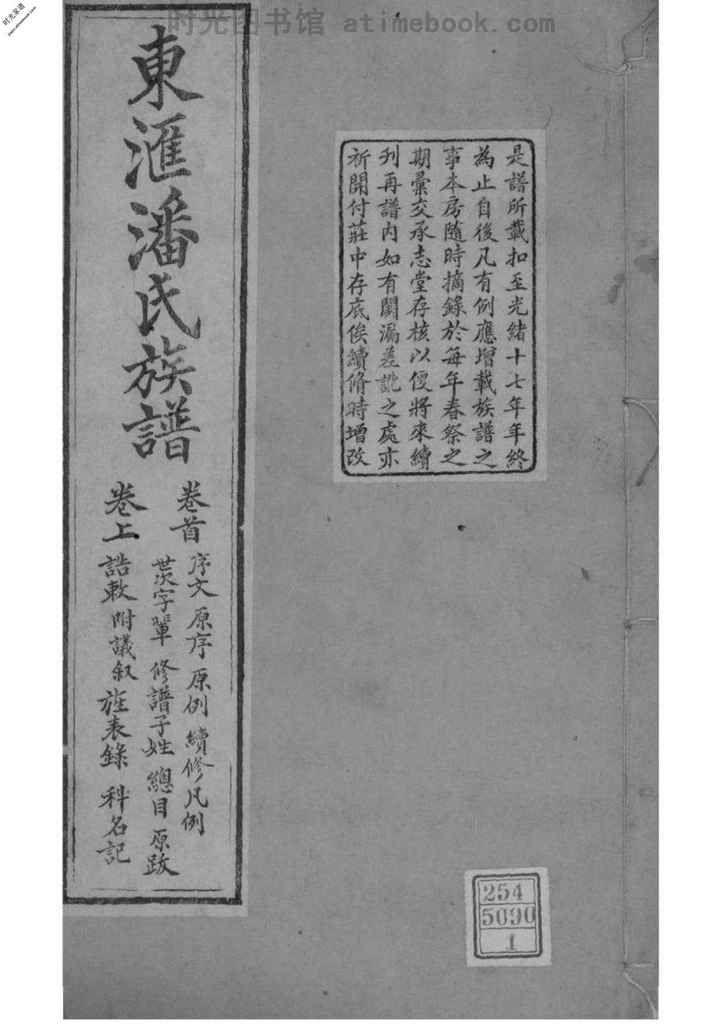 时光图书馆 atimebook.com
是譜所載扣至光緒十七年年終
為止自後凡有例應增載族譜之
事本房隨時摘錄於每年春祭之
期彙交承志堂存核以便將來續
刊再譜內如有闕漏差訛之處亦
祈開付莊中存底俟續脩時增改
東滙潘氏族譜
卷首
序文 原序 原例 續修凡例
世次字輩 修譜子姓 總目 原跋
卷上
誥敕 附議叙 旌表錄 科名記
254
5090
1